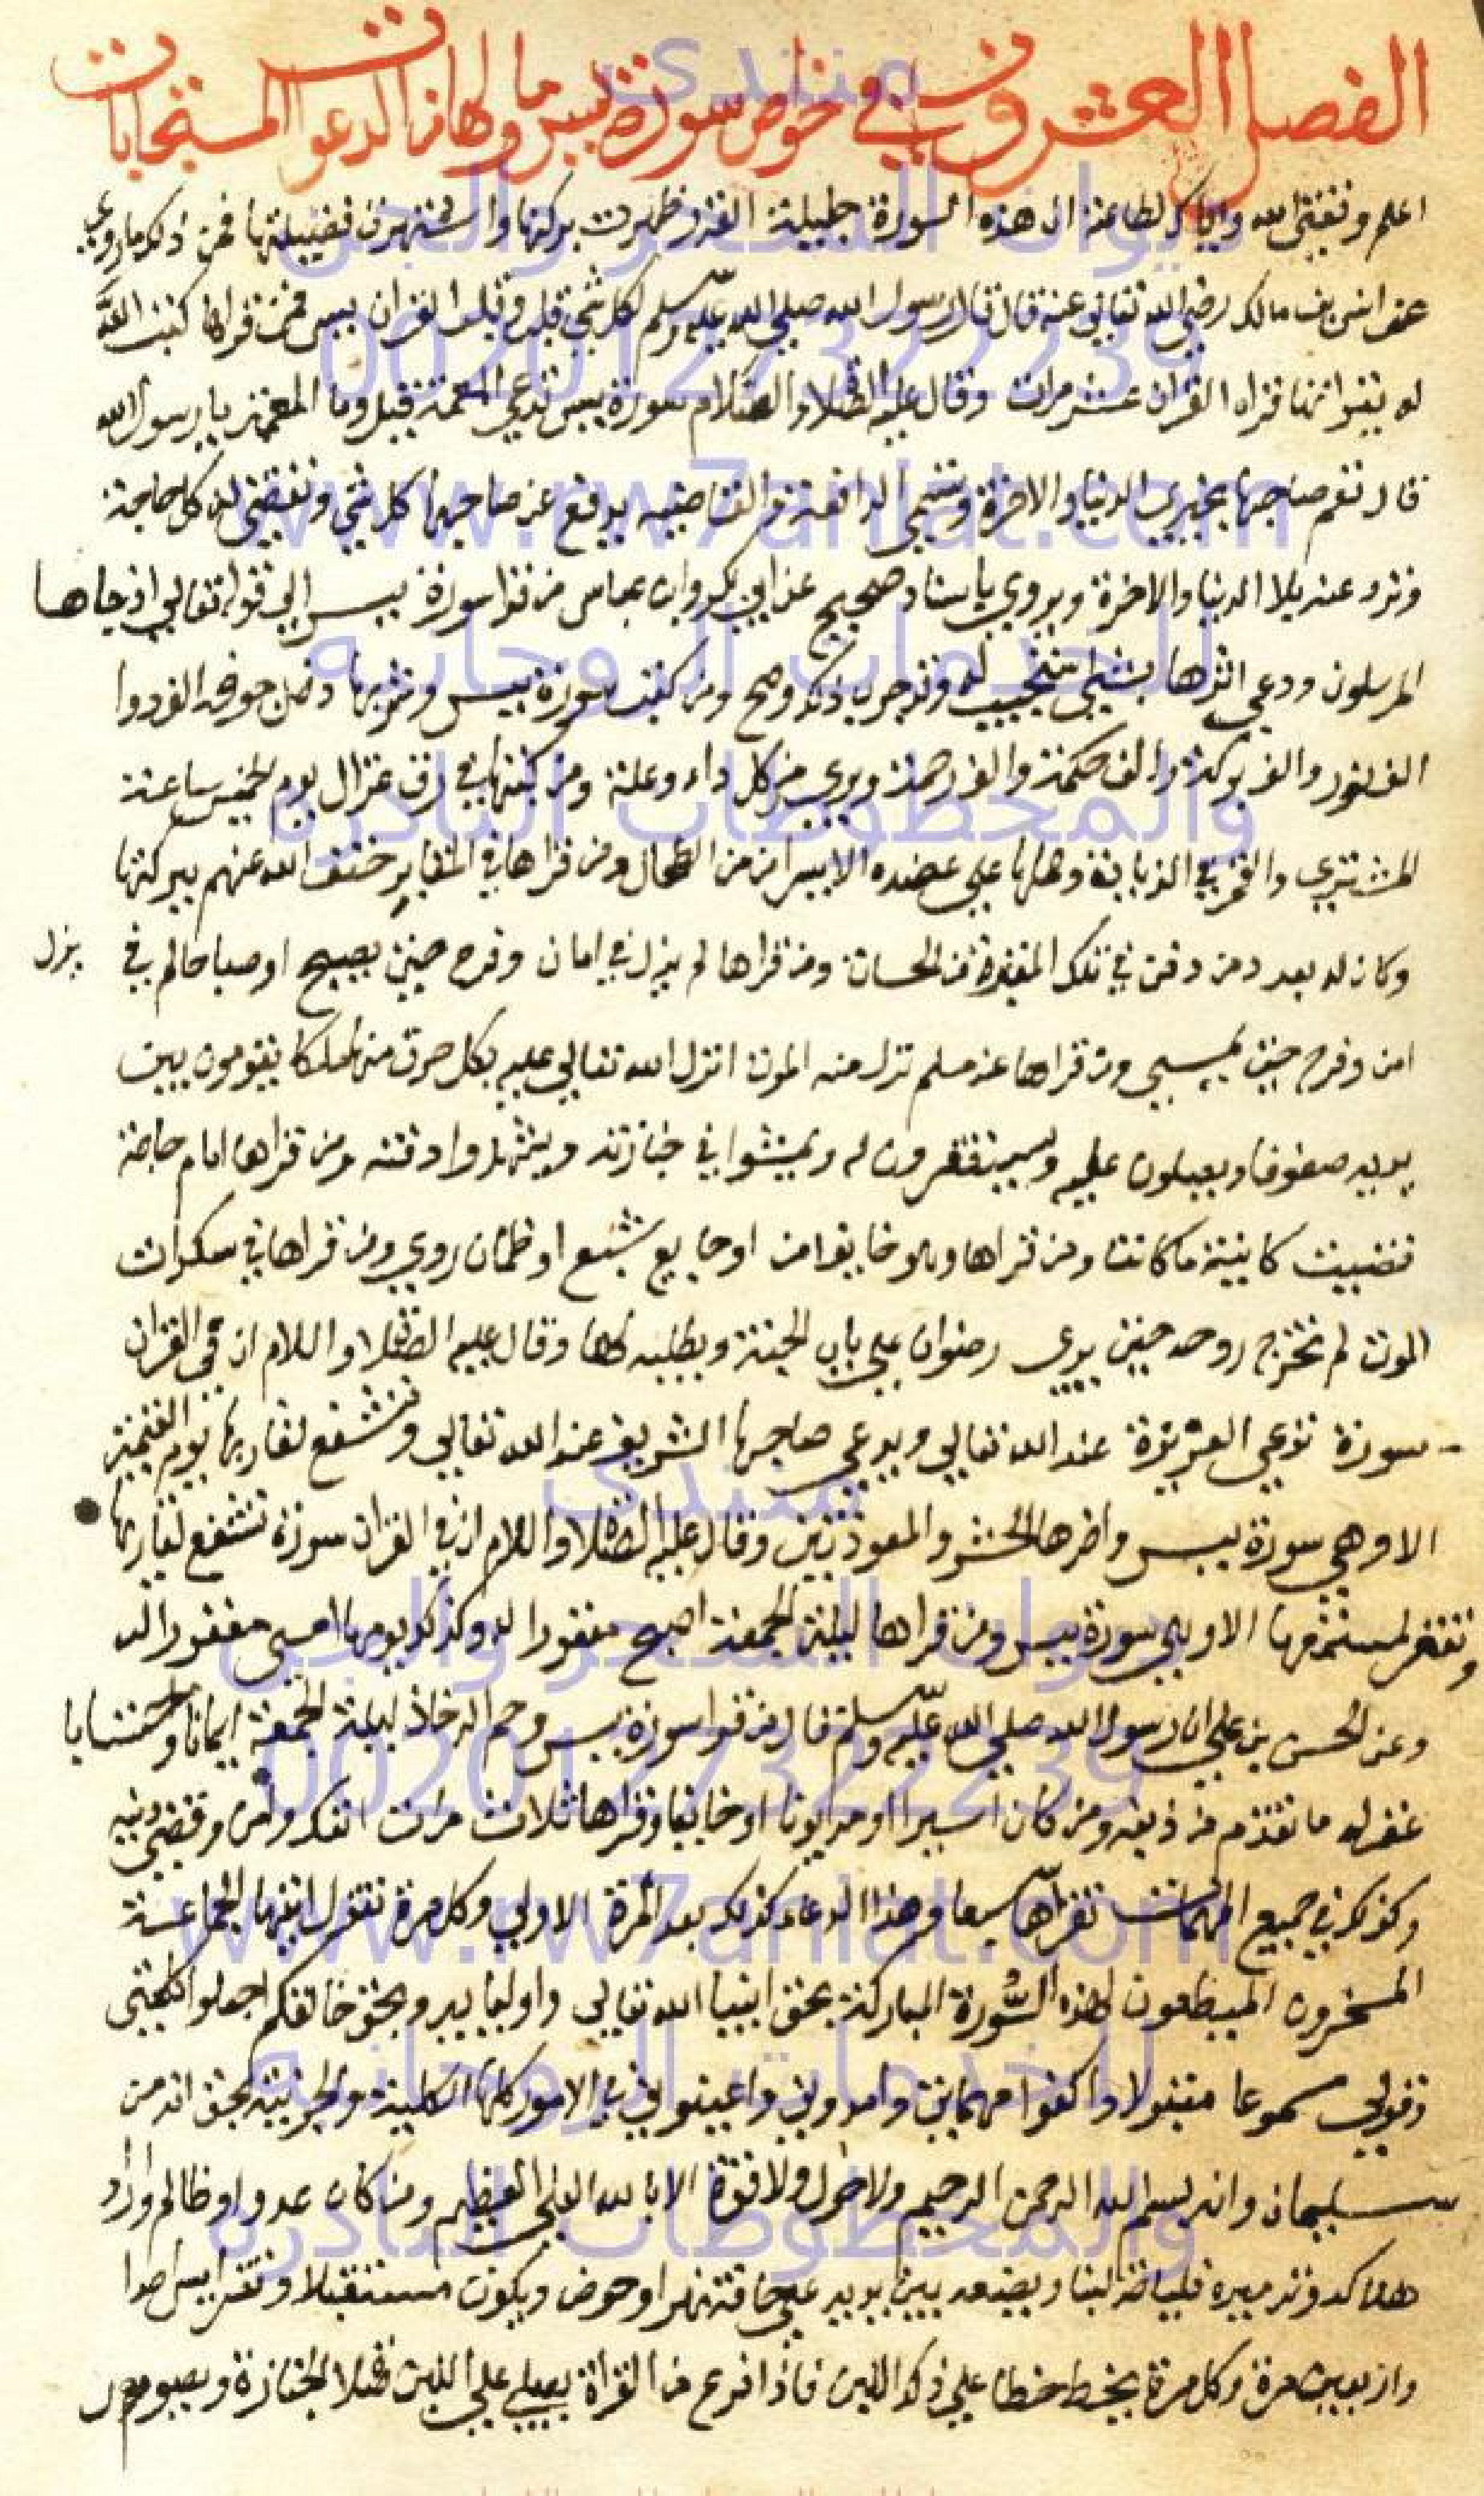 الفصل العشرون في خواص سورة يس وما لها من الدعوات المستجابات
اعلم وفقني الله واياك لطاعته ان هذه السورة جليلة القدر ظهرت بركتها واشتهرت فضيلتها فمن ذلك ما روي
عن انس بن مالك رضي الله تعالي عنه قال قال رسول الله صلي الله عليه وسلم لكل شي قلب وقلب القران يس فمن قراها كتب الله
له بقراتها قراة القران عشر مرات وقال عليه الصلاة والسلام سورة يس تدعي المعمة قيل وما المعمة يا رسول الله
قال تعم صاحبها بخيري الدنيا والاخرة وتسمي الدافعة والقاضيه يدفع عن صاحبها كل شي وتقضي له كل حاجة
وترد عنه بلا الدنيا والاخرة ويروي باسناد صحيح عن ابي بكر وابن عباس من قرا سورة يس الي قوله تعالي اذ جاها
المرسلون ودعي اثرها بشي استجيب له وقد جرب ذلك وصح ومن كتب سورة يس وشربها دخل جوفه الف دوا
الف نور والف بركة والف حكمة والف رحمة وبري من كل داء وعلة ومن كتبها في رق غزال يوم الخميس ساعة
المشتري والقمر في الزيادة وحملها علي عضده الايسر امن من الطحال ومن قراها في المقابر خفف الله عنهم ببركتها
وكان له بعدد من دفن في تلك المقبرة من الحسات ومن قراها لم يزل في امان وفرح حين يصبح او صباحا لم في يزل
امن وفرح حتي يمسي ومن قراها عند مسلم نزل منه الموت انزل الله تعالي عليه بكل حرف منها ملكا يقومون بين
يديه صفوفا ويصلون عليه ويستغفرون له ويمشوا في جنازته ويشهدوا دفنه ومن قراها امام حاجة
قضيت كاينة ما كانت ومن قراها وهو خايف امن او جايع شبع او ظمان روي ومن قراها في سكرات
الموت لم تخرج روحه حتي يري رضوان علي باب الجنة ويطلبه لها وقال عليه الصلاة والسلام ان في القران
سورة تدعي العزيزة عند الله تعالي ويدعي صاحبها الشريف عند الله تعالي وتشفع لقاريها يوم القيمة
الا وهي سورة يس واخرها الحشر والمعوذتين وقال عليه الصلاة والسلام ان في القران سورة تشفع لقاريها
وتغفر لمستمعها الا وهي سورة يس ومن قراها ليلة الجمعة اصبح مغفورا له وكذلك يومها امسي مغفورا له
وعن الحسن بن علي ان رسول الله صلي الله عليه وسلم قال من قرا سورة يس وحم الدخان ليلة الجمعة ايمانا واحتسابا
غفر له ما تقدم من ذنبه ومن كان اسيرا او مديونا او خايفا وقراها ثلاث مرات انفك وامن وقضي دينه
وكذلك في جميع المهمات تقراها سبعا وهذا الدعاء كذلك بعد المرة الاولي وكل مرة تقول ايتها الجماعة
المسخرون المطيعون لهذه السورة المباركة بحق انبيا الله تعالي واوليايه وبحق خالقكم اجعلوا كلمتي
وقولي مسموعا مقبولا واكفوا مهماتي وامدوني واعينوني في الامور كلها الكلية والجزيية بحق انه من
سليمان وانه بسم الله الرحمن الرحيم ولا حول ولا قوة الا بالله العلي العظيم ومن كان عدوا وظالم واراد
هلاكه وتدميره فلياخذ لبنا ويضعه بين يديه علي حافة نهر او حوض ويكون مستقبلا وتقرا يس احدا
واربعين مرة وكل مرة يخط خطا علي ذلك اللبن فاذا فرغ من القراة يصلي علي اللبن صلاة الجنازة